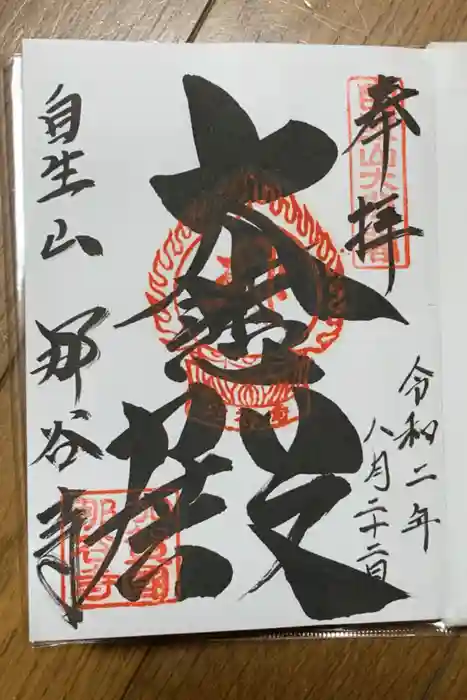 奉拝
令和二年
八月二十二日
大悲殿
自生山 那谷寺